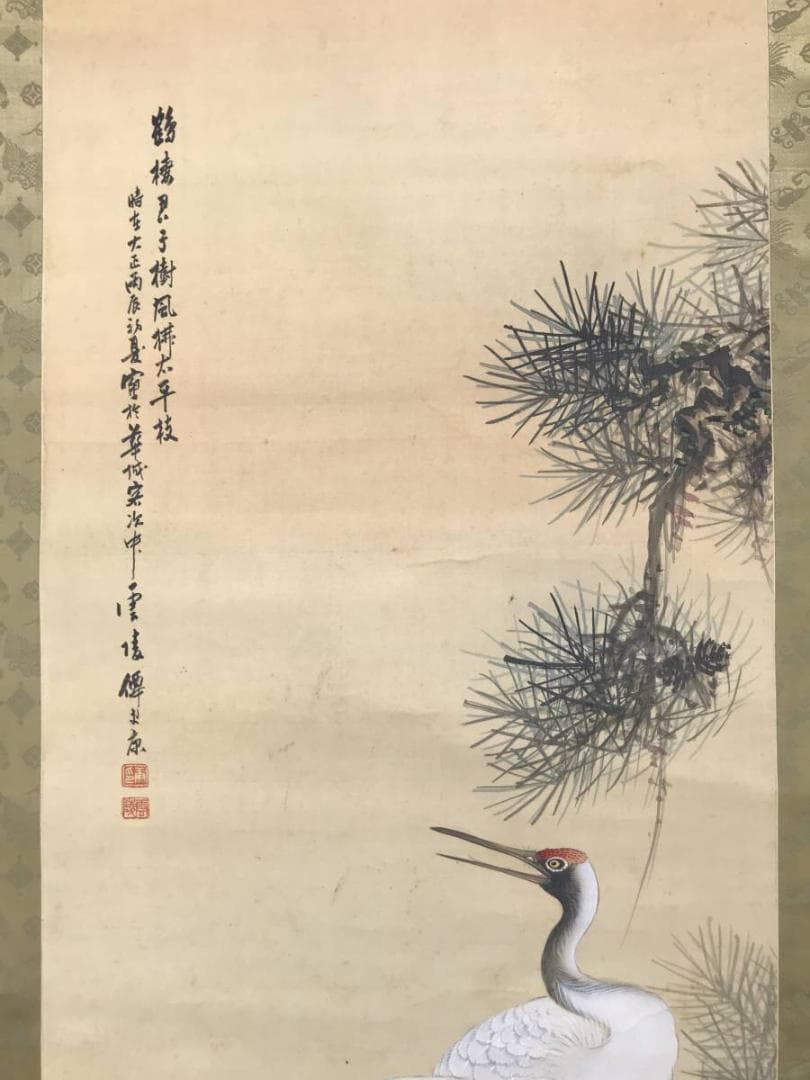 鶴棲君子樹風拂太平枝
時在大正丙辰初夏寫於華城客次中 雲陵